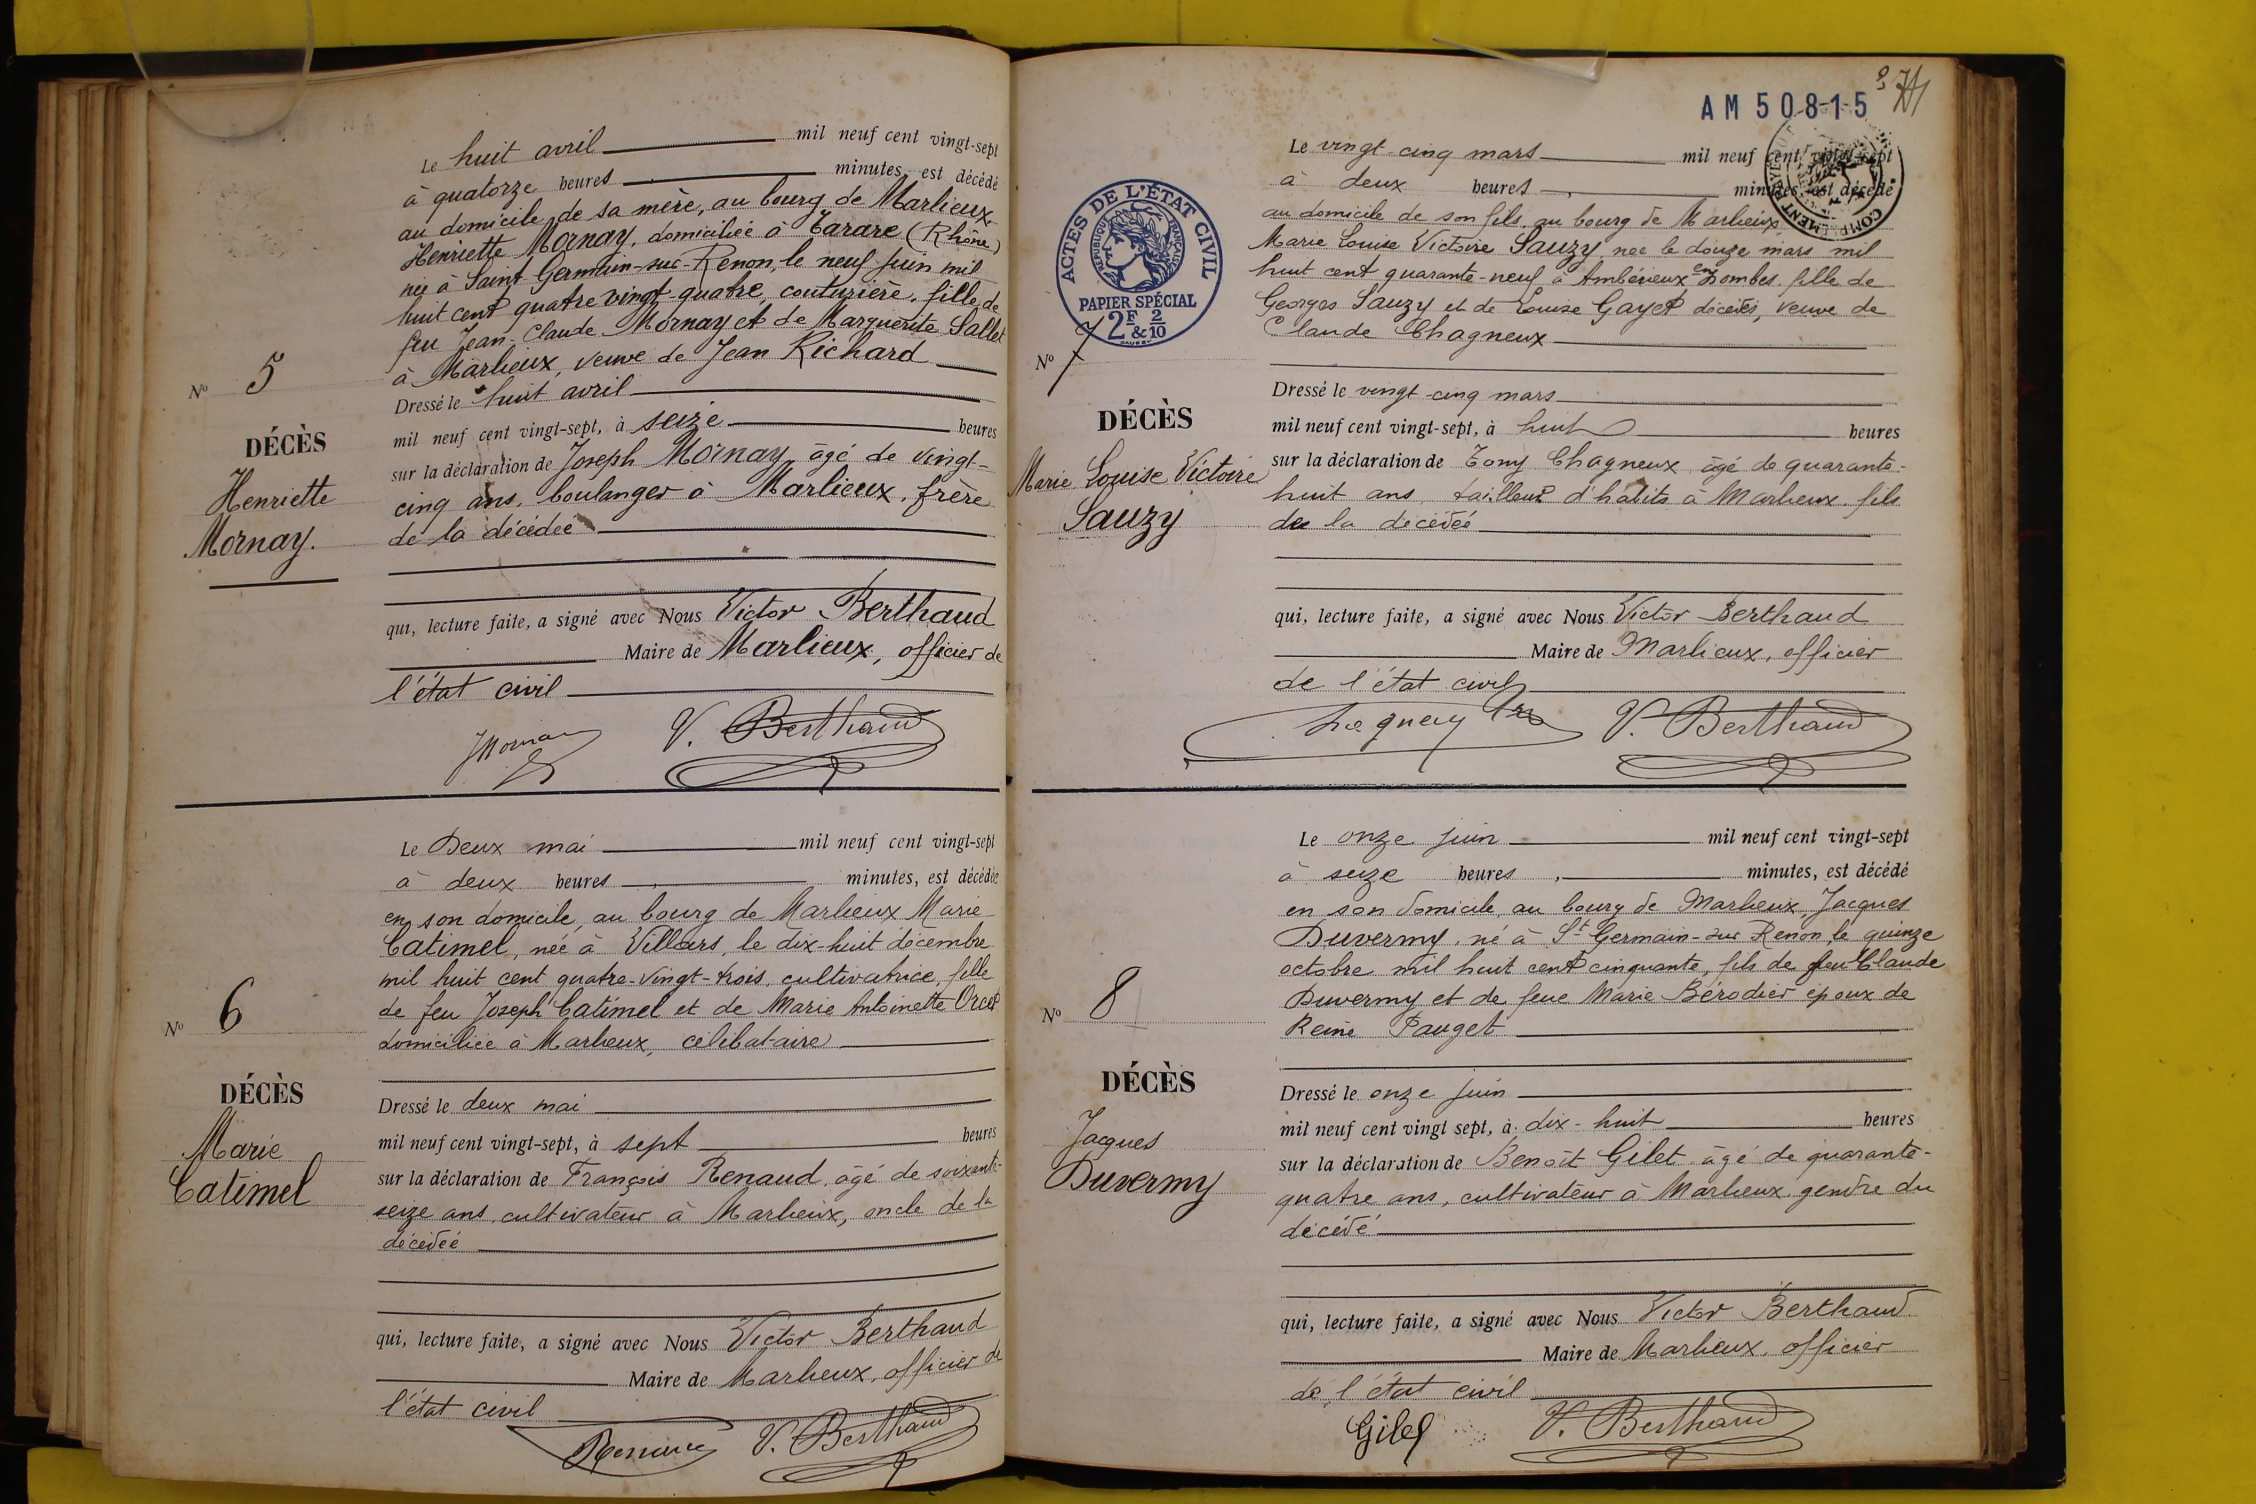 Le huit avril mil neuf cent vingt-sept
à quatorze heures minutes, est décédé
au domicile de sa mère, au bourg de Marlieux
Henriette Mornay, domiciliée à Tarare (Rhône)
née à Saint Germain-sur-Renon, le neuf juin mil
huit cent quatre vingt-quatre, couturière, fille de
feu Jean-Claude Mornay et de Marguerite Sallet
à Marlieux, veuve de Jean Richard
Nº 5
Dressé le huit avril
mil neuf cent vingt-sept, à seize heures
DÉCÈS
Henriette
Mornay.
sur la déclaration de Joseph Mornay, âgé de vingt-
cinq ans, boulanger à Marlieux, frère
de la décédée
qui, lecture faite, a signé avec Nous Victor Berthaud
Maire de Marlieux, officier de
l'état civil
JMornay V. Berthaud
Le Deux mai mil neuf cent vingt-sept
à deux heures minutes, est décédée
en son domicile, au bourg de Marlieux Marie
Catimel, née à Villars, le dix-huit décembre
mil huit cent quatre-vingt-trois, cultivatrice, fille
de feu Joseph Catimel et de Marie Antoinette Orcet
domiciliée à Marlieux, célibataire
Nº 6
DÉCÈS
Marie
Catimel
Dressé le deux mai
mil neuf cent vingt-sept, à sept heures
sur la déclaration de François Renaud, âgé de soixante-
seize ans, cultivateur à Marlieux, oncle de la
décédée
qui, lecture faite, a signé avec Nous Victor Berthaud
Maire de Marlieux, officier de
l'état civil
Renaud V. Berthaud
AM 50815
Le vingt-cinq mars mil neuf cent vingt-sept
à deux heures minutes, est décédé
au domicile de son fils, au bourg de Marlieux,
Marie Louise Victoire Sauzy née le douze mars mil
huit cent quarante-neuf à Ambérieux en Dombes, fille de
Georges Sauzy et de Louise Gayet décédés, veuve de
Claude Chagneux
ACTES DE L'ÉTAT CIVIL
RÉPUBLIQUE FRANÇAISE
PAPIER SPÉCIAL
2F & 2/10
Nº 7
DÉCÈS
Marie Louise Victoire
Sauzy
Dressé le vingt-cinq mars
mil neuf cent vingt-sept, à huit heures
sur la déclaration de Tony Chagneux, âgé de quarante-
huit ans, tailleur d'habits à Marlieux, fils
de la décédée
qui, lecture faite, a signé avec Nous Victor Berthaud
Maire de Marlieux, officier
de l'état civil
V. Berthaud
Le onze juin mil neuf cent vingt-sept
à seize heures, minutes, est décédé
en son domicile, au bourg de Marlieux, Jacques
Duvermy, né à St Germain-sur Renon, le quinze
octobre mil huit cent cinquante, fils de feu Claude
Duvermy et de feue Marie Bérodier époux de
Reine Pauget
Nº 8
DÉCÈS
Jacques
Duvermy
Dressé le onze juin
mil neuf cent vingt sept, à dix-huit heures
sur la déclaration de Benoît Gilet, âgé de quarante-
quatre ans, cultivateur à Marlieux, gendre du
décédé
qui, lecture faite, a signé avec Nous Victor Berthaud
Maire de Marlieux, officier
de l'état civil
Gilet V. Berthaud